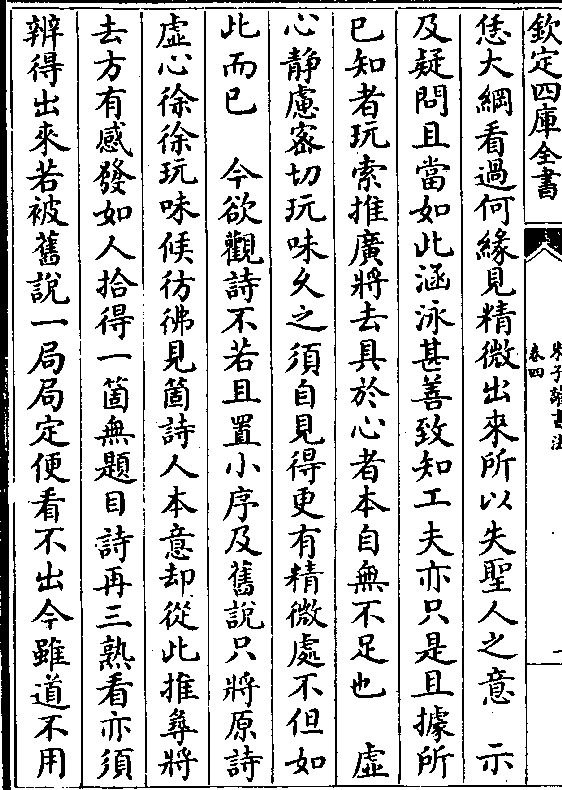 欽定四庫全書
朱子讀書法
卷四
恁大綱看過何緣見精微出來所以失聖人之意　示
及疑問且當如此涵泳甚善致知工夫亦只是且據所
已知者玩索推廣將去具於心者本自無不足也　虛
心靜慮密切玩味久之須自見得更有精微處不但如
此而已　今欲觀詩不若且置小序及舊說只將原詩
虛心徐徐玩味候彷彿見箇詩人本意却從此推尋將
去方有感發如人拾得一箇無題目詩再三熟看亦須
辨得出來若被舊說一局局定便看不出今雖道不用